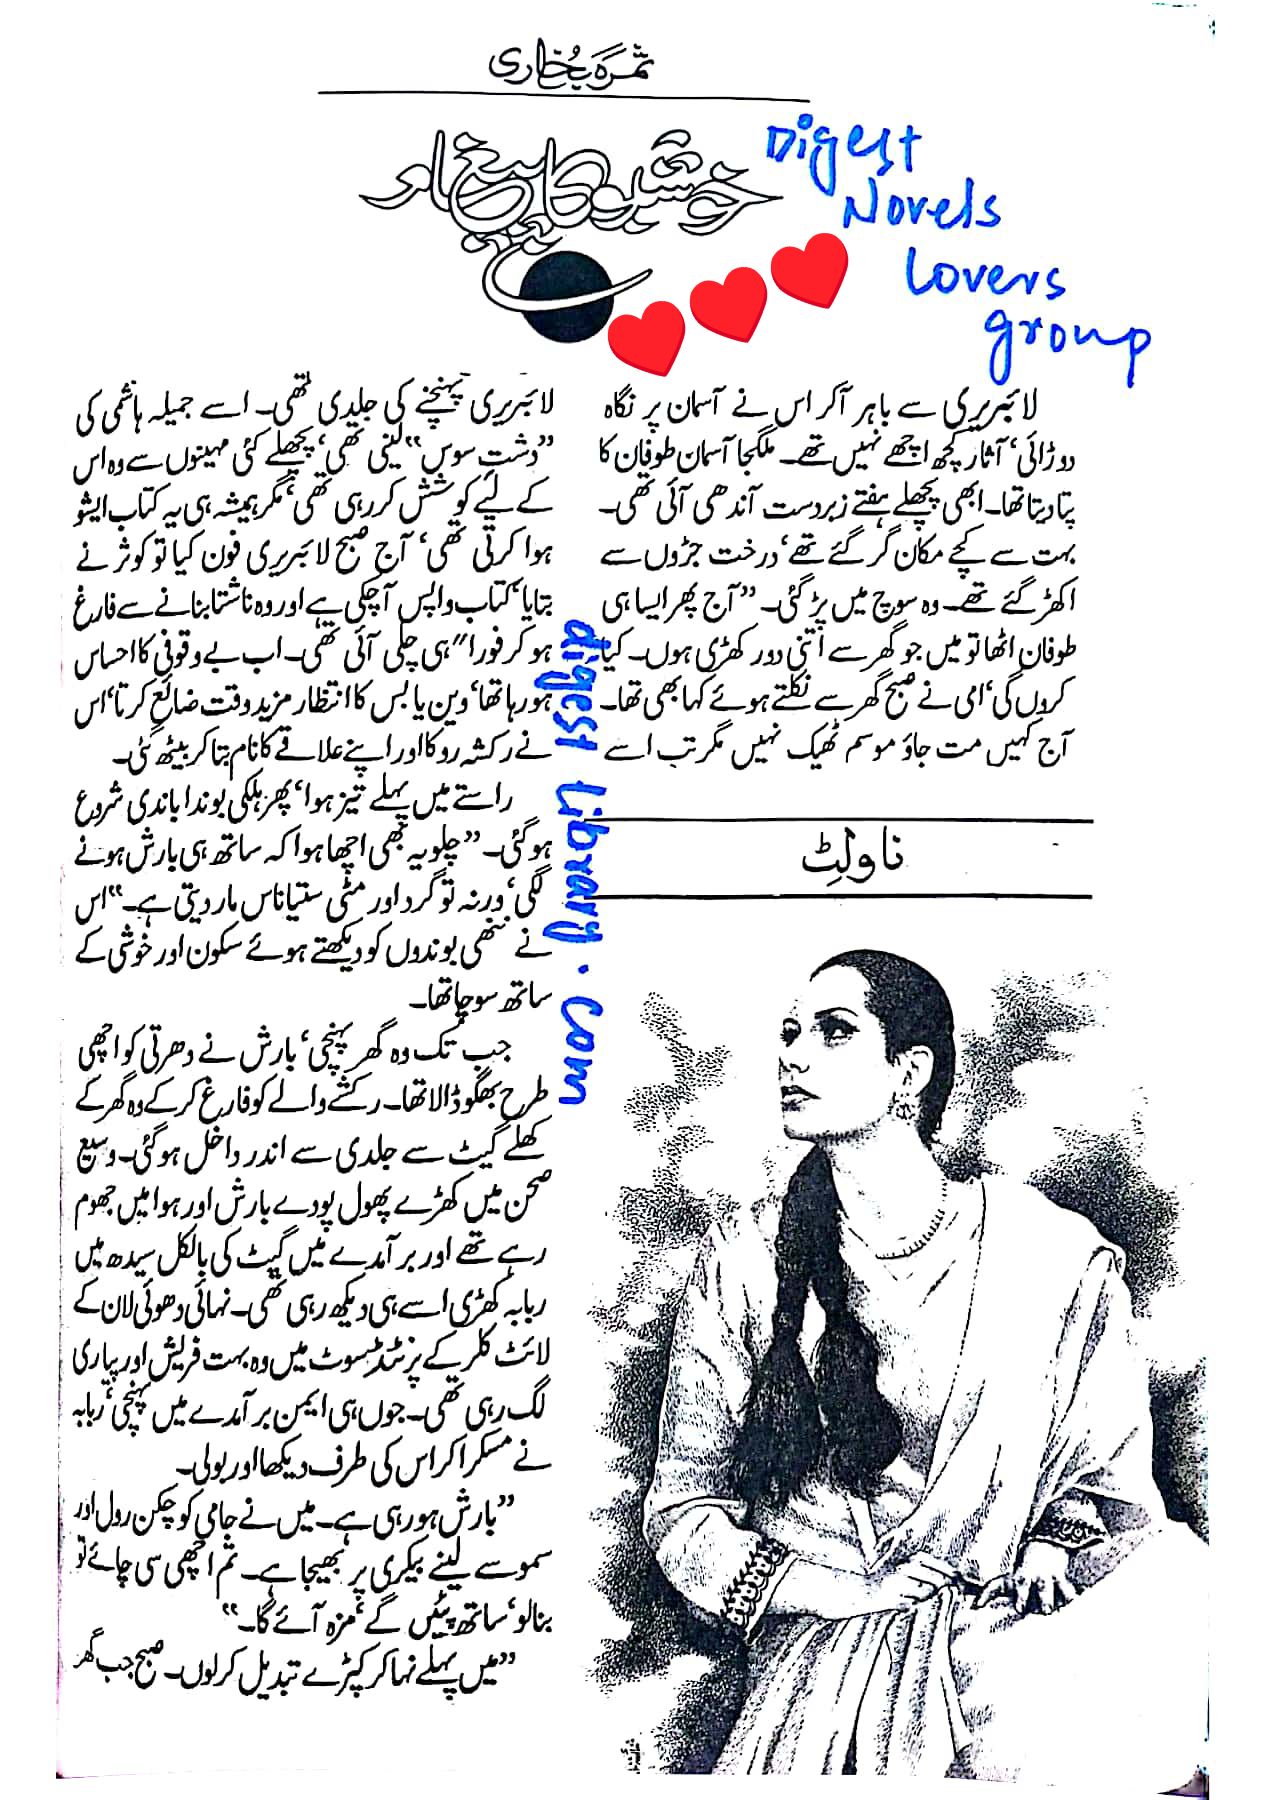 ثمرہ بخاری
خوشبو کا پیغام
Digest
Novels
Lovers
group
لائبریری سے باہر آکر اس نے آسمان پر نگاہ
دوڑائی‘ آثار کچھ اچھے نہیں تھے۔ ملگجا آسمان طوفان کا
پتا دیتا تھا۔ ابھی پچھلے ہفتے زبردست آندھی آئی تھی۔
بہت سے کچے مکان گر گئے تھے‘ درخت جڑوں سے
اکھڑ گئے تھے۔ وہ سوچ میں پڑ گئی۔ ”آج پھر ایسا ہی
طوفان اٹھا تو میں جو گھر سے اتنی دور کھڑی ہوں۔ کیا
کروں گی‘ امی نے صبح گھر سے نکلتے ہوئے کہا بھی تھا۔
آج کہیں مت جاؤ موسم ٹھیک نہیں مگر تب اسے
ناولٹ
لائبریری پہنچنے کی جلدی تھی۔ اسے جمیلہ ہاشمی کی
”دشتِ سوس“ لینی تھی‘ پچھلے کئی مہینوں سے وہ اس
کے لیے کوشش کر رہی تھی‘ مگر ہمیشہ ہی یہ کتاب ایشو
ہوا کرتی تھی‘ آج صبح لائبریری فون کیا تو کوثر نے
بتایا‘ کتاب واپس آچکی ہے اور وہ ناشتا بنانے سے فارغ
ہو کر فورا" ہی چلی آئی تھی۔ اب بے وقوفی کا احساس
ہو رہا تھا‘ وین یا بس کا انتظار مزید وقت ضائع کرتا‘ اس
نے رکشہ روکا اور اپنے علاقے کا نام بتا کر بیٹھ گئی۔
راستے میں پہلے تیز ہوا‘ پھر ہلکی بوندا باندی شروع
ہو گئی۔ ”چلو یہ بھی اچھا ہوا کہ ساتھ ہی بارش ہونے
لگی‘ ورنہ تو گرد اور مٹی ستیاناس مار دیتی ہے۔“ اس
نے ننھی بوندوں کو دیکھتے ہوئے سکون اور خوشی کے
ساتھ سوچا تھا۔
جب تک وہ گھر پہنچی‘ بارش نے دھرتی کو اچھی
طرح بھگو ڈالا تھا۔ رکشے والے کو فارغ کر کے وہ گھر کے
کھلے گیٹ سے جلدی سے اندر داخل ہو گئی۔ وسیع
صحن میں کھڑے پھول پودے بارش اور ہوا میں جھوم
رہے تھے اور برآمدے میں گیٹ کی بالکل سیدھ میں
ربابہ کھڑی اسے ہی دیکھ رہی تھی۔ نہائی دھوئی لان کے
لائٹ کلر کے پرنٹڈ سوٹ میں وہ بہت فریش اور پیاری
لگ رہی تھی۔ جوں ہی ایمن برآمدے میں پہنچی‘ ربابہ
نے مسکرا کر اس کی طرف دیکھا اور بولی۔
”بارش ہو رہی ہے۔ میں نے جامی کو چکن رول اور
سموسے لینے بیکری پر بھیجا ہے۔ تم اچھی سی چائے تو
بنالو‘ ساتھ پئیں گے‘ مزہ آئے گا۔“
”میں پہلے نہا کر کپڑے تبدیل کرلوں۔ صبح جب گھر
digest library.com